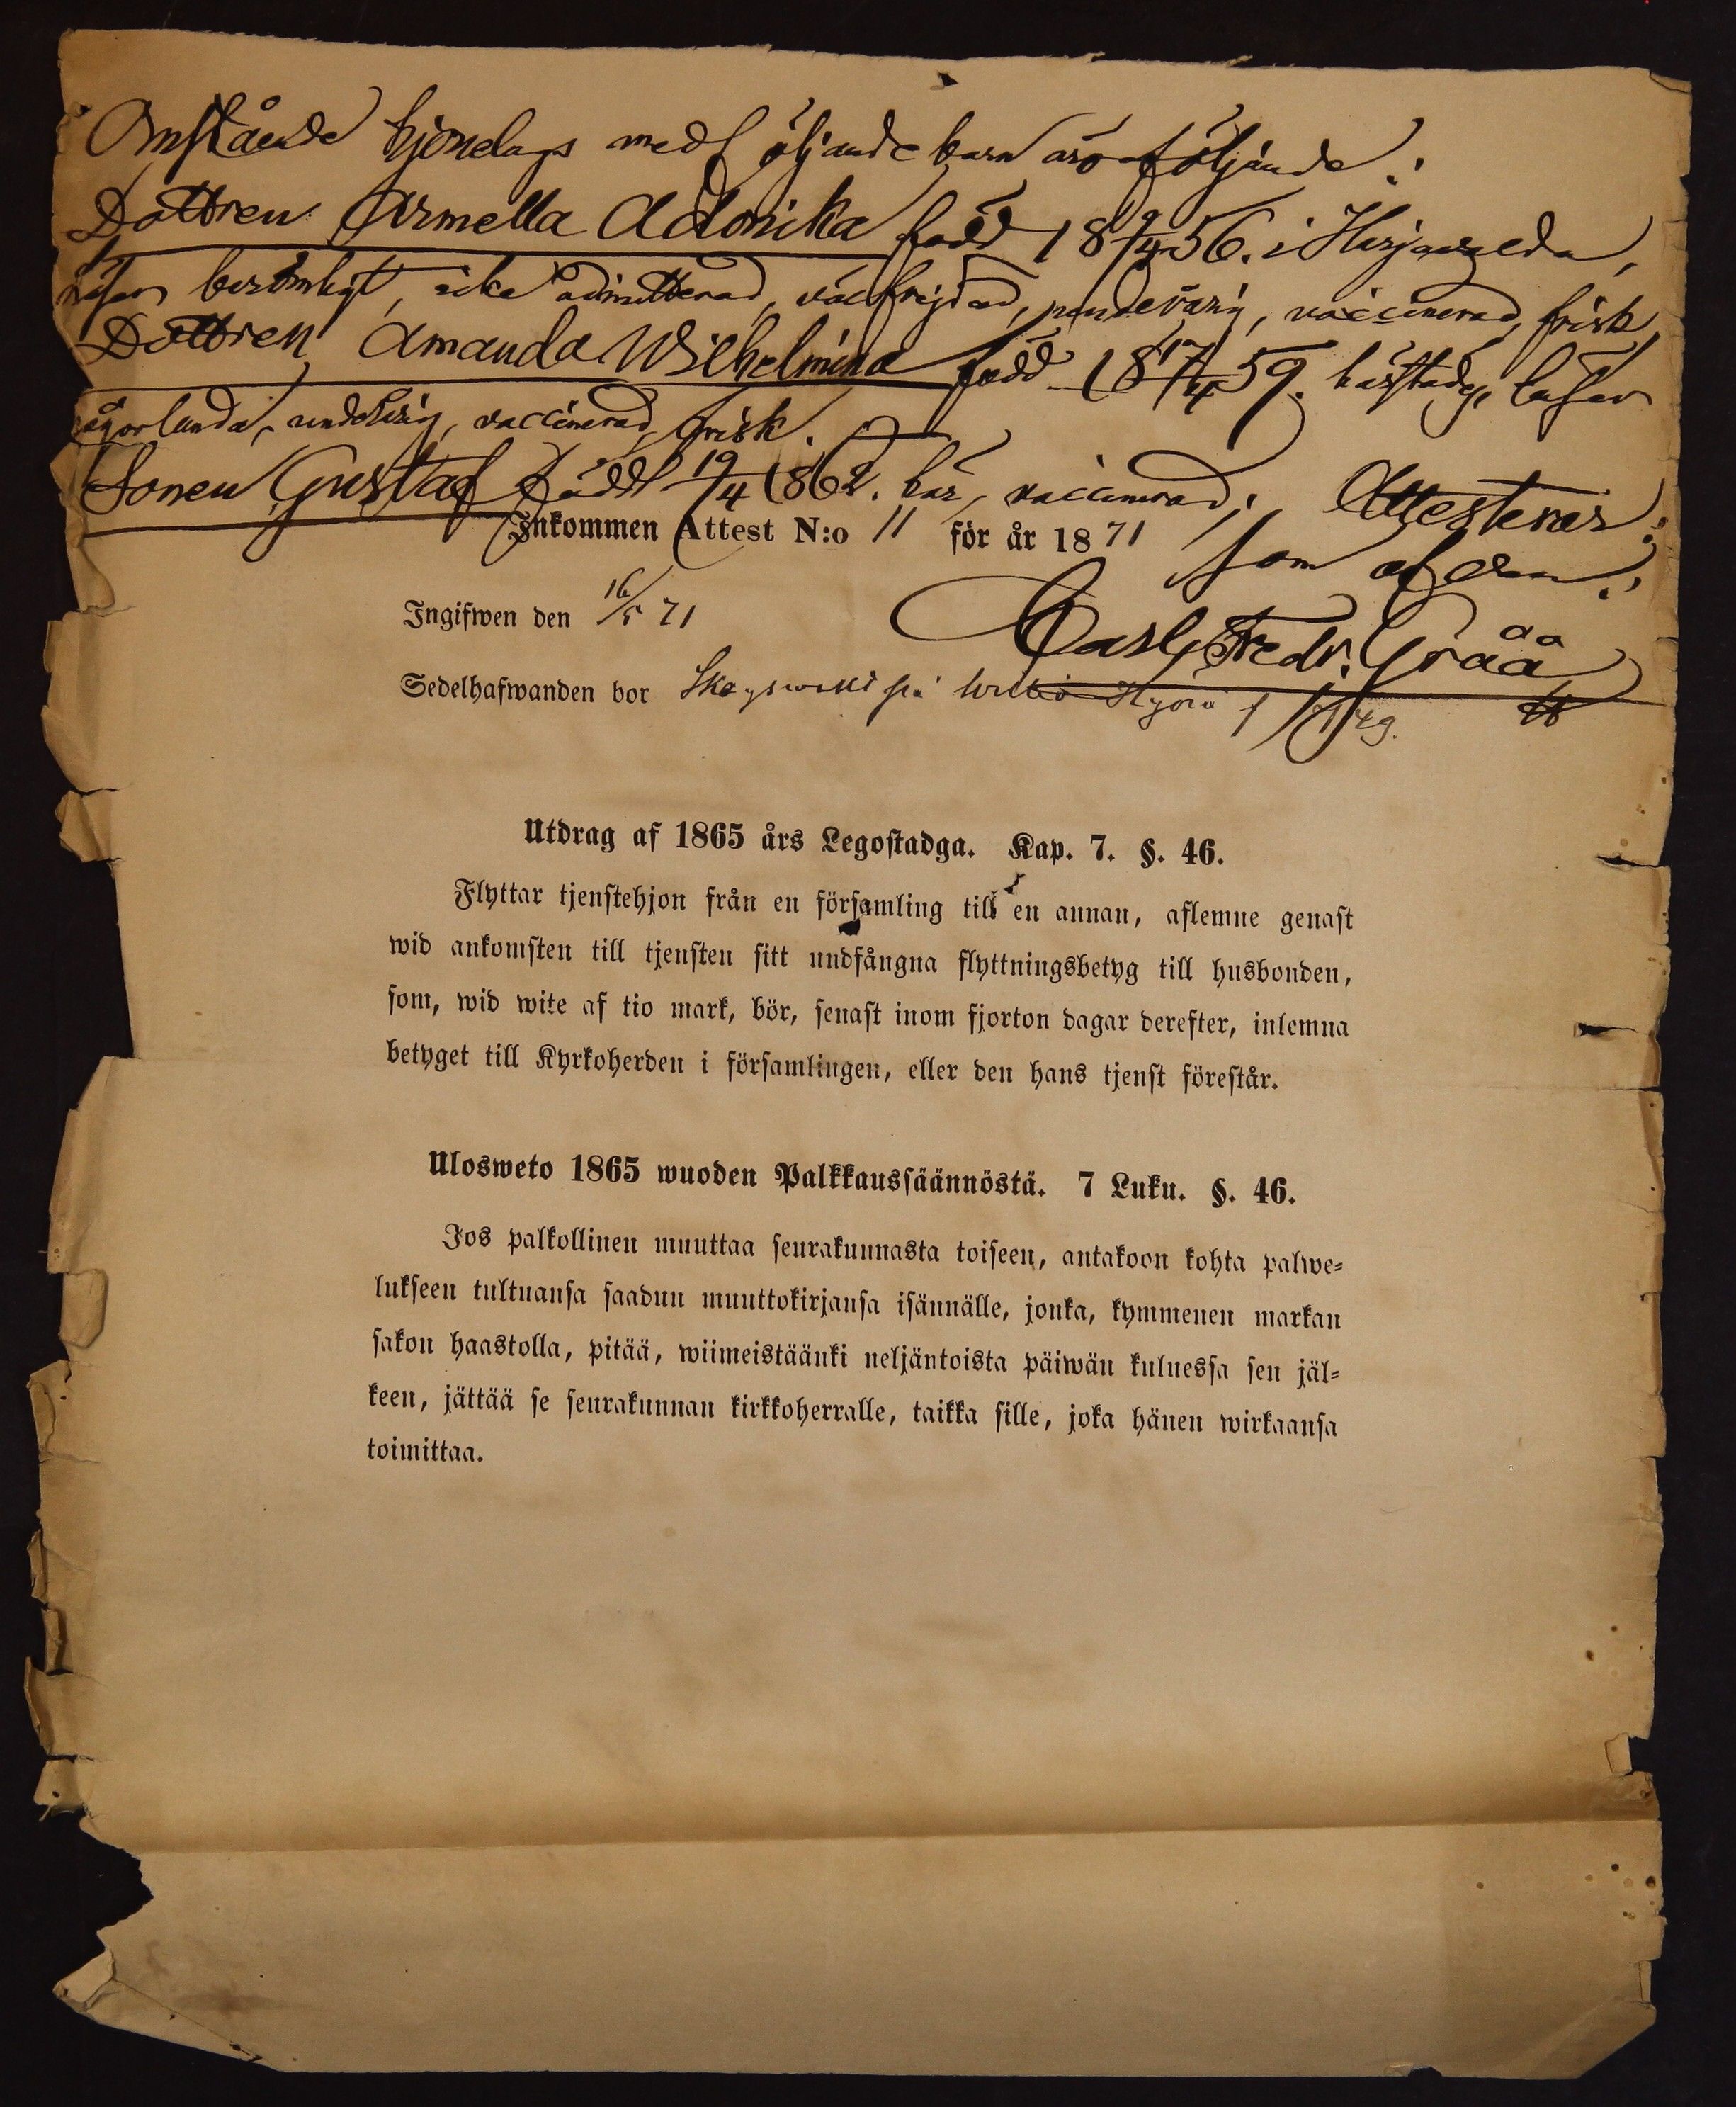 Omstående hjonelags medföljande barn äro följande:
Dottren Armella Adonika född 18 9/4 56. i Harjavalda,
läser berömligt, icke admitterad, välfrejdad, vaccinerad, frisk
Dottren Amanda Wilhelmina född 18 17/4 59. härstädes, läser
någorlunda, vaccinerad, frisk.
Sonen Gustaf född 19/4 1862. här, vaccinerad; Attesterar:
Inkommen Attest N:o 11 för år 1871
som ofvan:
Ingifwen den 16/5 71
Carl Fredr. Gråå
Sedelhafwanden bor på
Utdrag af 1865 års Legostadga. Kap. 7. §. 46.
Flyttar tjenstehjon från en församling till en annan, aflemne genast
wid ankomsten till tjensten sitt undfångna flyttningsbetyg till husbonden,
som, wid wite af tio mark, bör, senast inom fjorton dagar derefter, inlemna
betyget till Kyrkoherden i församlingen, eller den hans tjenst förestår.
Ulosweto 1865 wuoden Palkkaussäännöstä. 7 Luku. §. 46.
Jos palkollinen muuttaa seurakunnasta toiseen, antakoon kohta palwe-
lukseen tultuansa saadun muuttokirjansa isännälle, jonka, kymmenen markan
sakon haastolla, pitää, wiimeistäänki neljäntoista päiwän kuluessa sen jäl-
keen, jättää se seurakunnan kirkkoherralle, taikka sille, joka hänen wirkaansa
toimittaa.